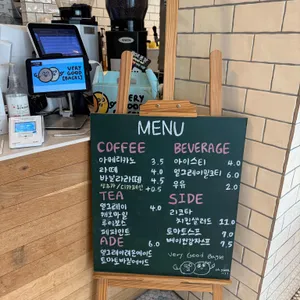 VERY GOOD
VERY GOOD
MENU
COFFEE
아메리카노 3.5
라떼 4.0
바닐라라떼 4.5
+0.5
TEA
얼그레이 4.0
캐모마일
루이보스
페퍼민트
ADE 6.0
얼그레이레몬에이드
토마토바질에이드
BEVERAGE
아이스티 4.0
얼그레이밀크티 6.0
우유 2.0
SIDE
리코타
치킨샐러드 11.0
토마토스프 7.0
베이컨감자스프 7.5
Very Good